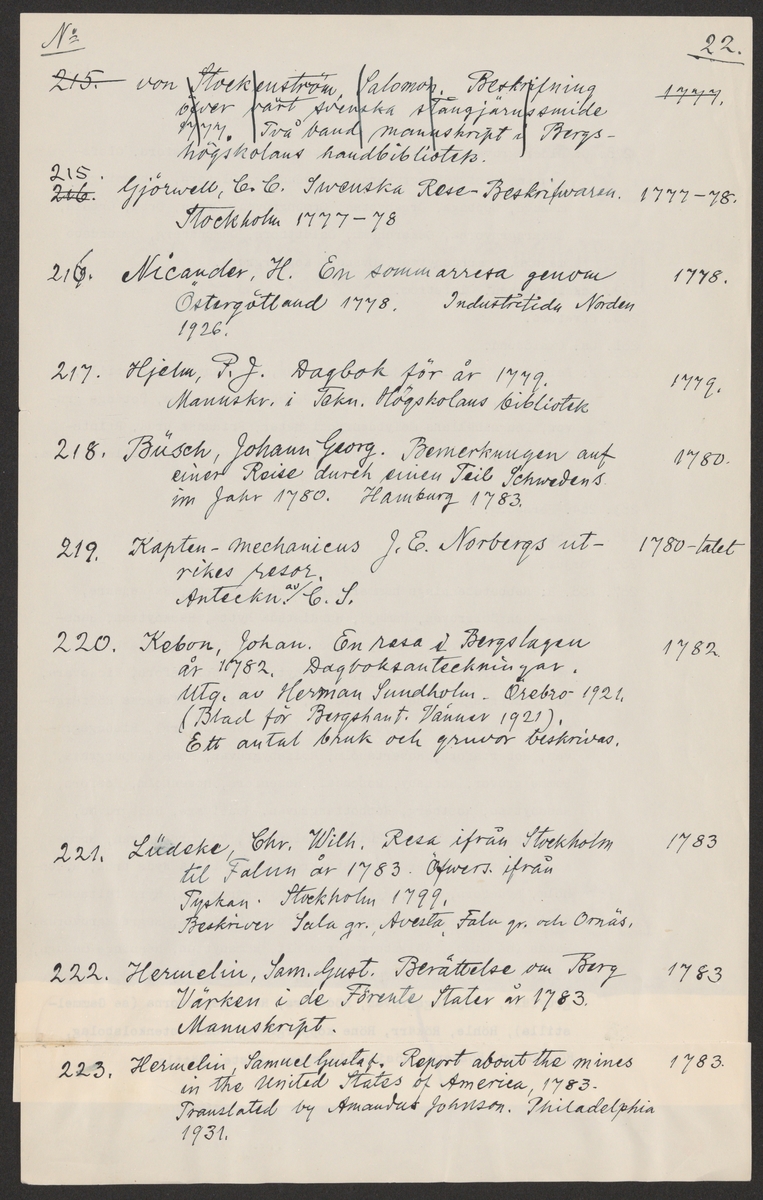 No 22.
215. von Stockenström, Salomon. Beskrifning 1777.
över vårt svenska stångjärnssmide
1777. Två band manuskript i Bergs-
högskolans handbibliotek.
215.
216. Gjörwell, C. C. Swenska Rese-Beskrifwaren. 1777-78.
Stockholm 1777-78
216. Nicander, H. En sommarresa genom 1778.
Östergötland 1778. Industritidn Norden
1926.
217. Hjelm, P. J. Dagbok för år 1779. 1779.
Manuskr. i Tekn. Högskolans bibliotek
218. Büsch, Johann Georg. Bemerkungen auf 1780.
einer Reise durch einen Teil Schwedens
im Jahr 1780. Hamburg 1783.
219. Kapten-mechanicus J. E. Norbergs ut- 1780-talet
rikes resor.
Anteckn. av C. S.
220. Kebon, Johan. En resa i Bergslagen 1782
år 1782. Dagboksanteckningar.
Utg. av Herman Sundholm. Örebro 1921.
(Blad för Bergshant. Vänner 1921).
Ett antal bruk och gruvor beskrivas.
221. Lüdeke, Chr. Wilh. Resa ifrån Stockholm 1783
til Falun år 1783. Öfwers. ifrån
Tyskan. Stockholm 1799.
Beskriver Sala gr., Avesta, Falu gr. och Ornäs.
222. Hermelin, Sam. Gust. Berättelse om Berg 1783
Värken i de Förente Stater år 1783.
Manuskript.
223. Hermelin, Samuel Gustaf. Report about the mines 1783.
in the United States of America, 1783.
Translated by Amandus Johnson. Philadelphia
1931.